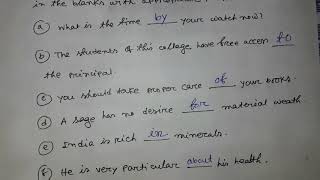 in the blanks with appropriate
(a) what is the time by your watch now?
(b) The students of this college have free access to
the principal.
(c) you should take proper care of your books.
(d) A sage has no desire for material weath
(e) India is rich in minerals.
(f) He is very particular about his health.